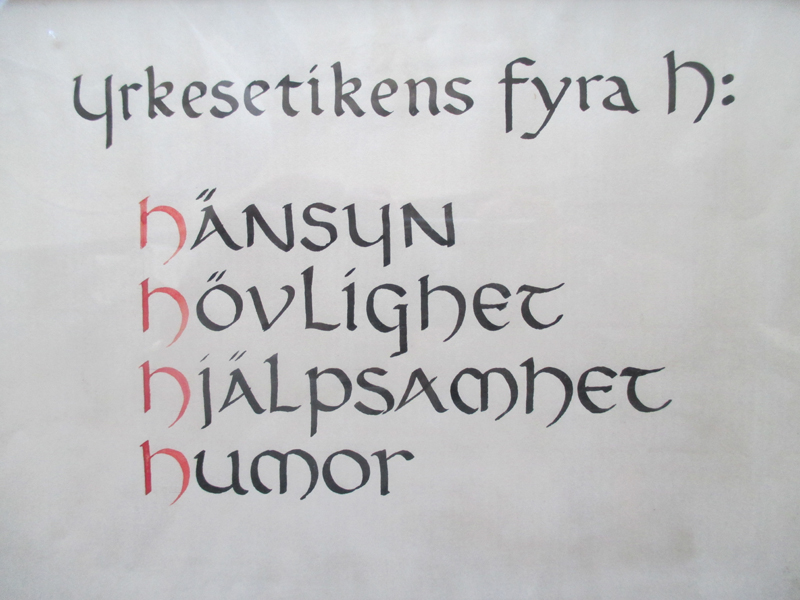 Yrkesetikens fyra h:
hänsyn
hövlighet
hjälpsamhet
humor